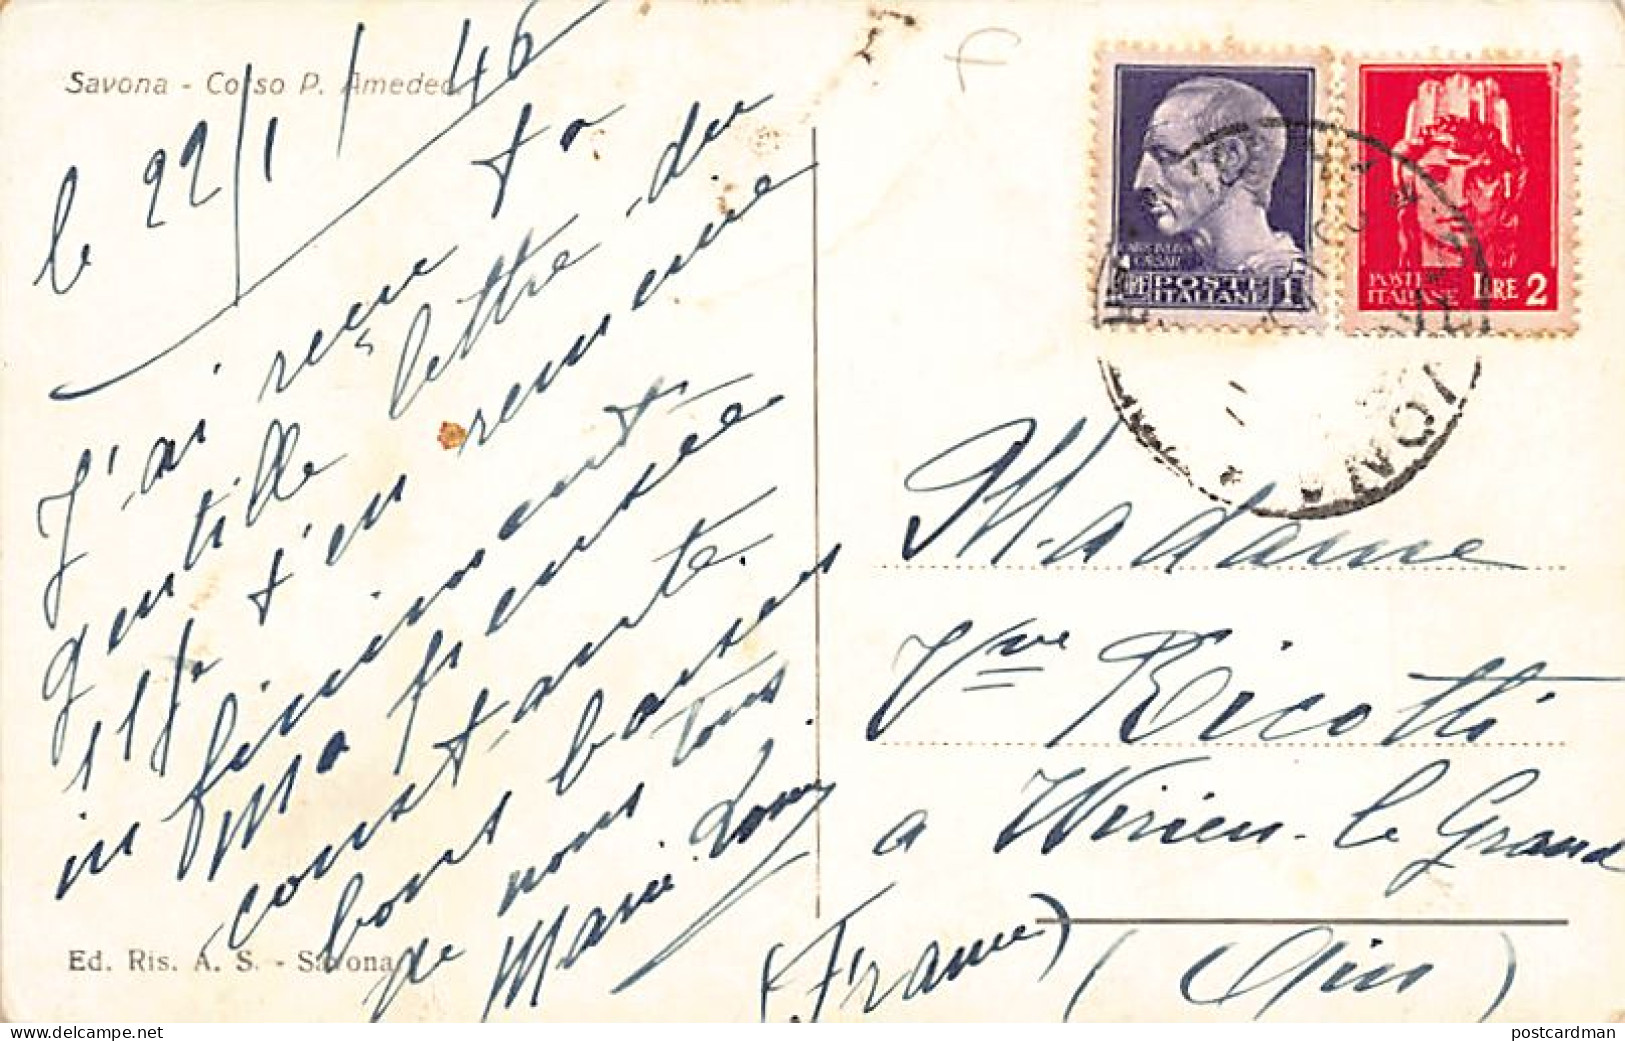 Savona - Corso P. Amedeo
le 22/1/46
J'ai reçu ta
gentille lettre du
11 je t'en remercie
infiniment
Ma pensée
constante.
bons baisers
de nous tous
Marie.
Ed. Ris. A. S. - Savona
POSTE
ITALIANE 1
POSTE
ITALIANE
LIRE 2
Madame
Vve Ricotti
a Virieu-le Grand
(France) (Ain)
postcardman